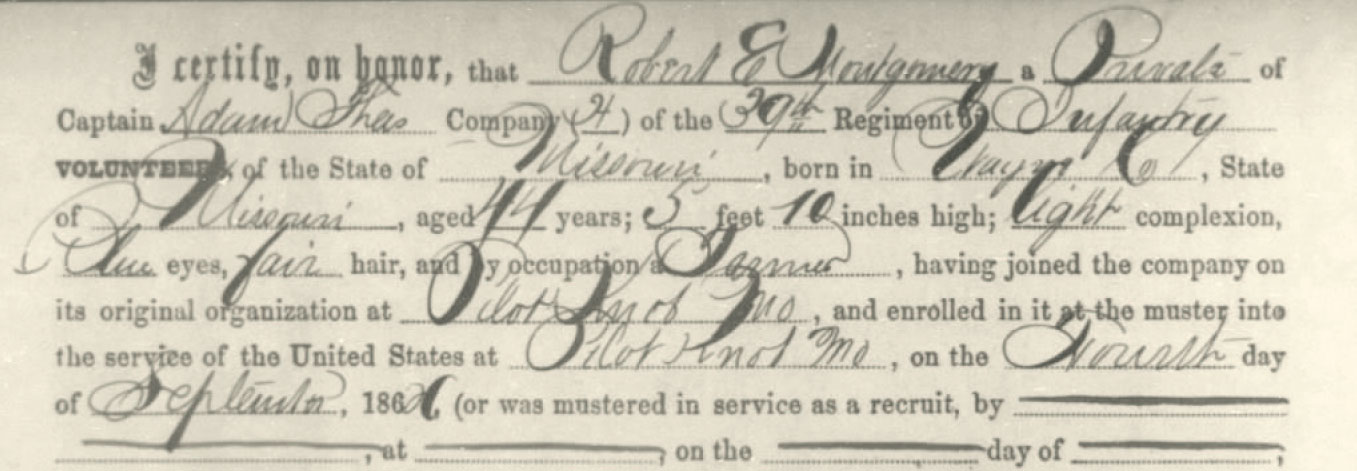 I certify, on honor, that Robert E Montgomery a Private of
Captain Adam Theis Company (H) of the 39th Regiment of Infantry
VOLUNTEERS of the State of Missouri, born in Wayne Co, State
of Missouri, aged 44 years; 5 feet 10 inches high; light complexion,
Blue eyes, fair hair, and by occupation a Farmer, having joined the company on
its original organization at Pilot Knob Mo, and enrolled in it at the muster into
the service of the United States at Pilot Knob Mo, on the Fourth day
of September, 186 (or was mustered in service as a recruit, by
, at , on the day of ,